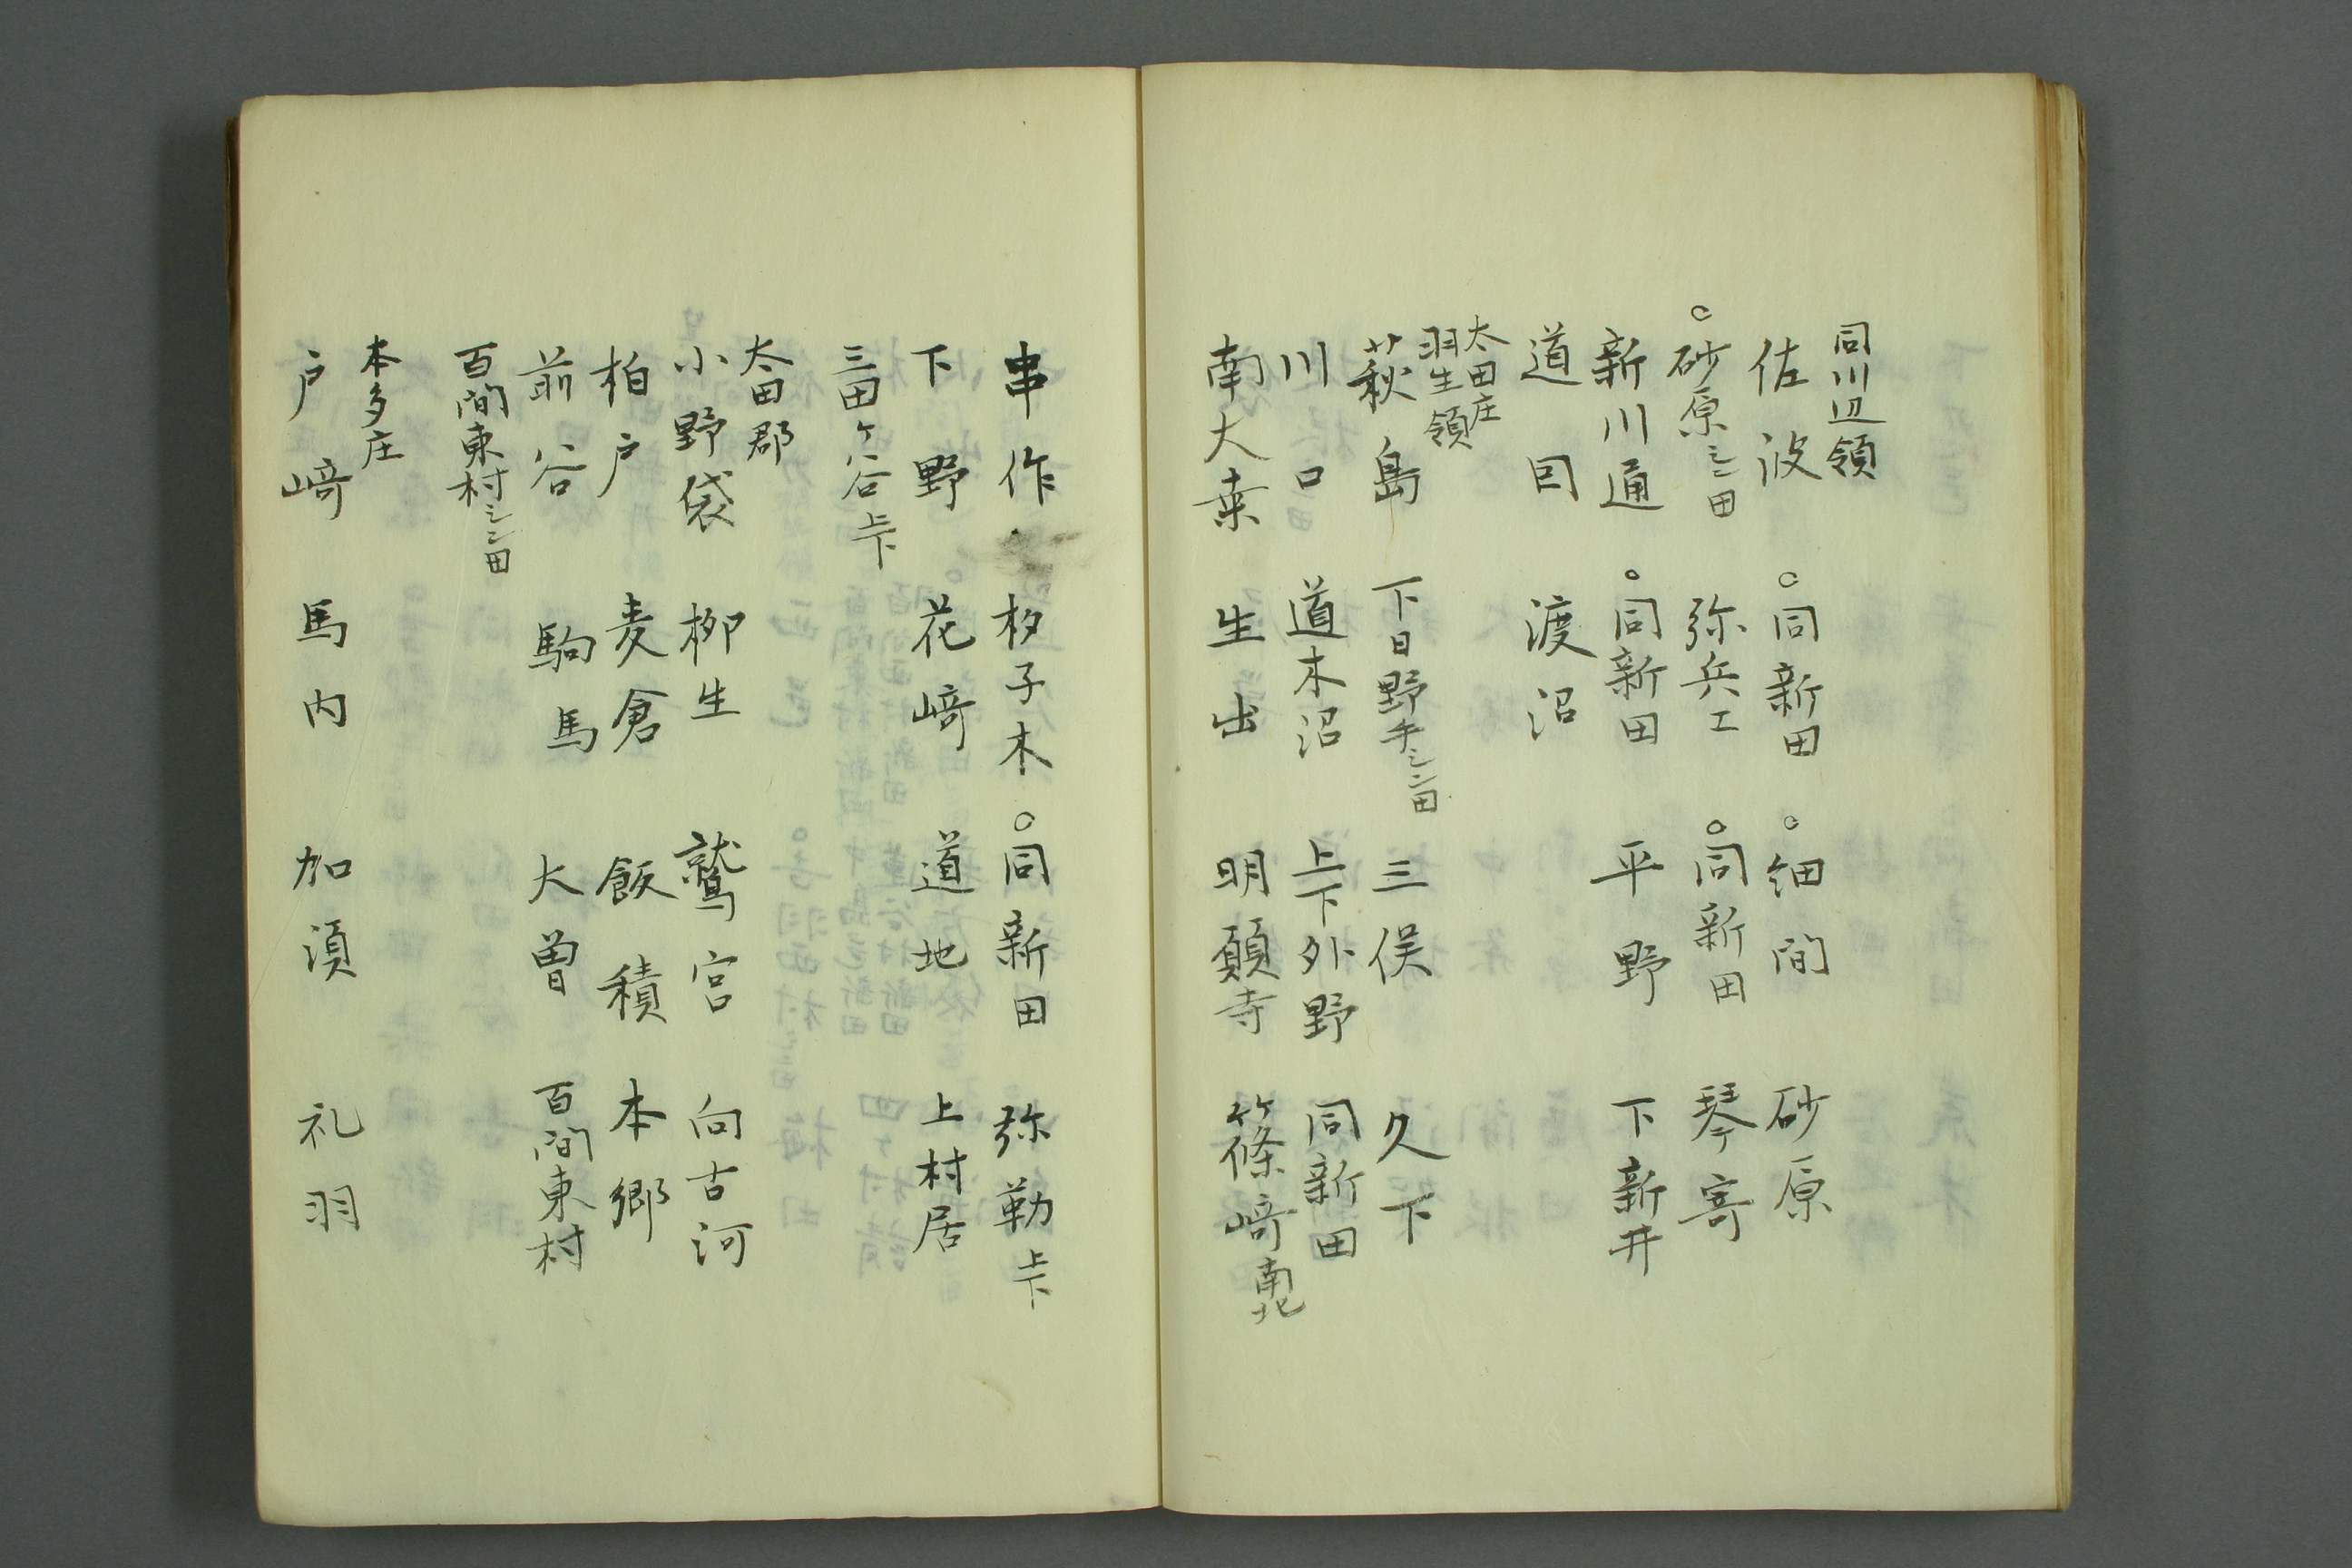 同川辺領
佐波 ○同新田 ○細間 砂原
○砂原シン田 弥兵エ ○同新田 琴寄
新川通 ○同新田 平野 下新井
道目 渡沼
太田庄
羽生領
萩島 下日野手シン田 三俣 久下
川口 道木沼 上下外野 同新田
南大桒 生出 明願寺 篠﨑南北
串作 杦子木 ○同新田 弥勒上下
下野 花﨑 道地 上村居
三田ケ谷上下
太田郡
小野袋 柳生 鷲宮 向古河
柏戸 麦倉 飯積 本郷
前谷 駒馬 大曽 百間東村
百間東村シン田
本多庄
戸﨑 馬内 加須 礼羽